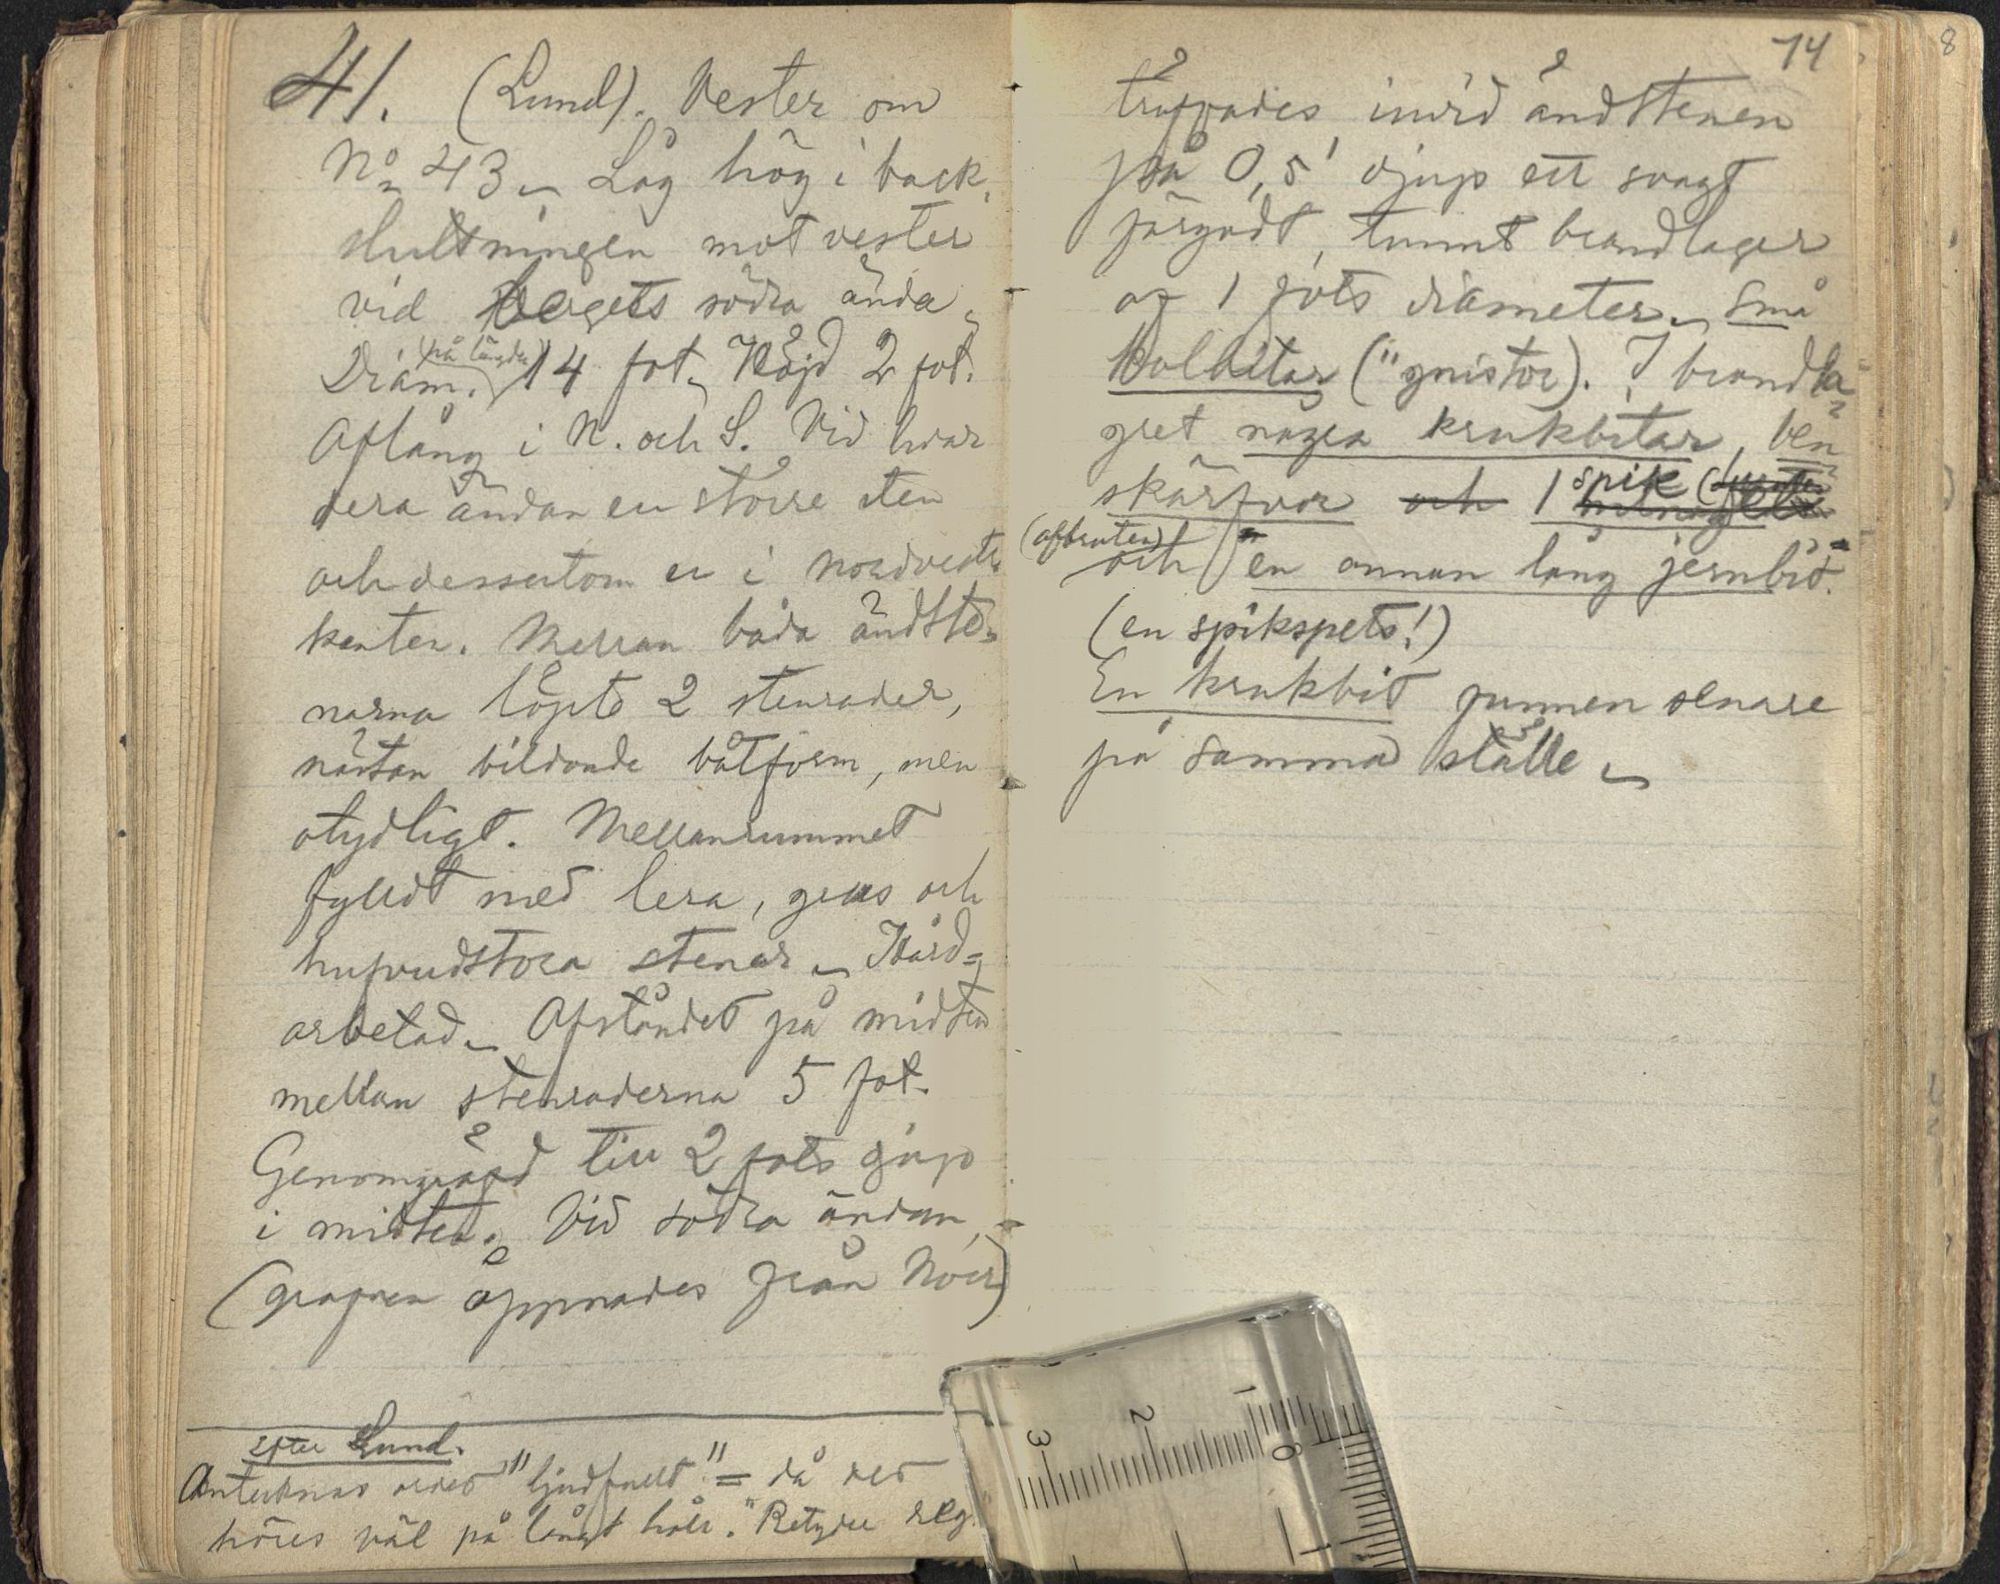 41. (Lund). Vester om
No 43. Låg hög i back-
sluttningen mot vester
vid bergets södra ända.
(på längden)
Diam. 14 fot. Höjd 2 fot.
Aflång i N. och S. Vid hvar
dera ändan en större sten
och dessutom en i nordvestra
kanten. Mellan båda ändste-
narna löpte 2 stenrader,
nästan bildande båtform, men
otydligt. Mellanrummet
fylldt med lera, grus och
hufvudstora stenar. Hård-
arbetad. Afståndet på midten
mellan stenraderna 5 fot.
Genomgräfd till 2 fots djup
i midten. Vid södra ändan,
(grafven öppnades från Norr)
efter Lund.
Antecknas ordet "ljudfullt" = då det
höres väl på långt håll. "Betyder reg."
14
träffades invid ändstenen
på 0,5' djup ett svagt
färgadt, tunnt brandlager
af 1 fots diameter. Små
kolbitar ("gnistor). I brandla-
gret några krukbitar, ben
skärfvor och 1 spik
(afbruten)
och en annan lång jernbit.
(en spikspets!)
En krukbit funnen senare
på samma ställe.
8
3 2 1
0
1